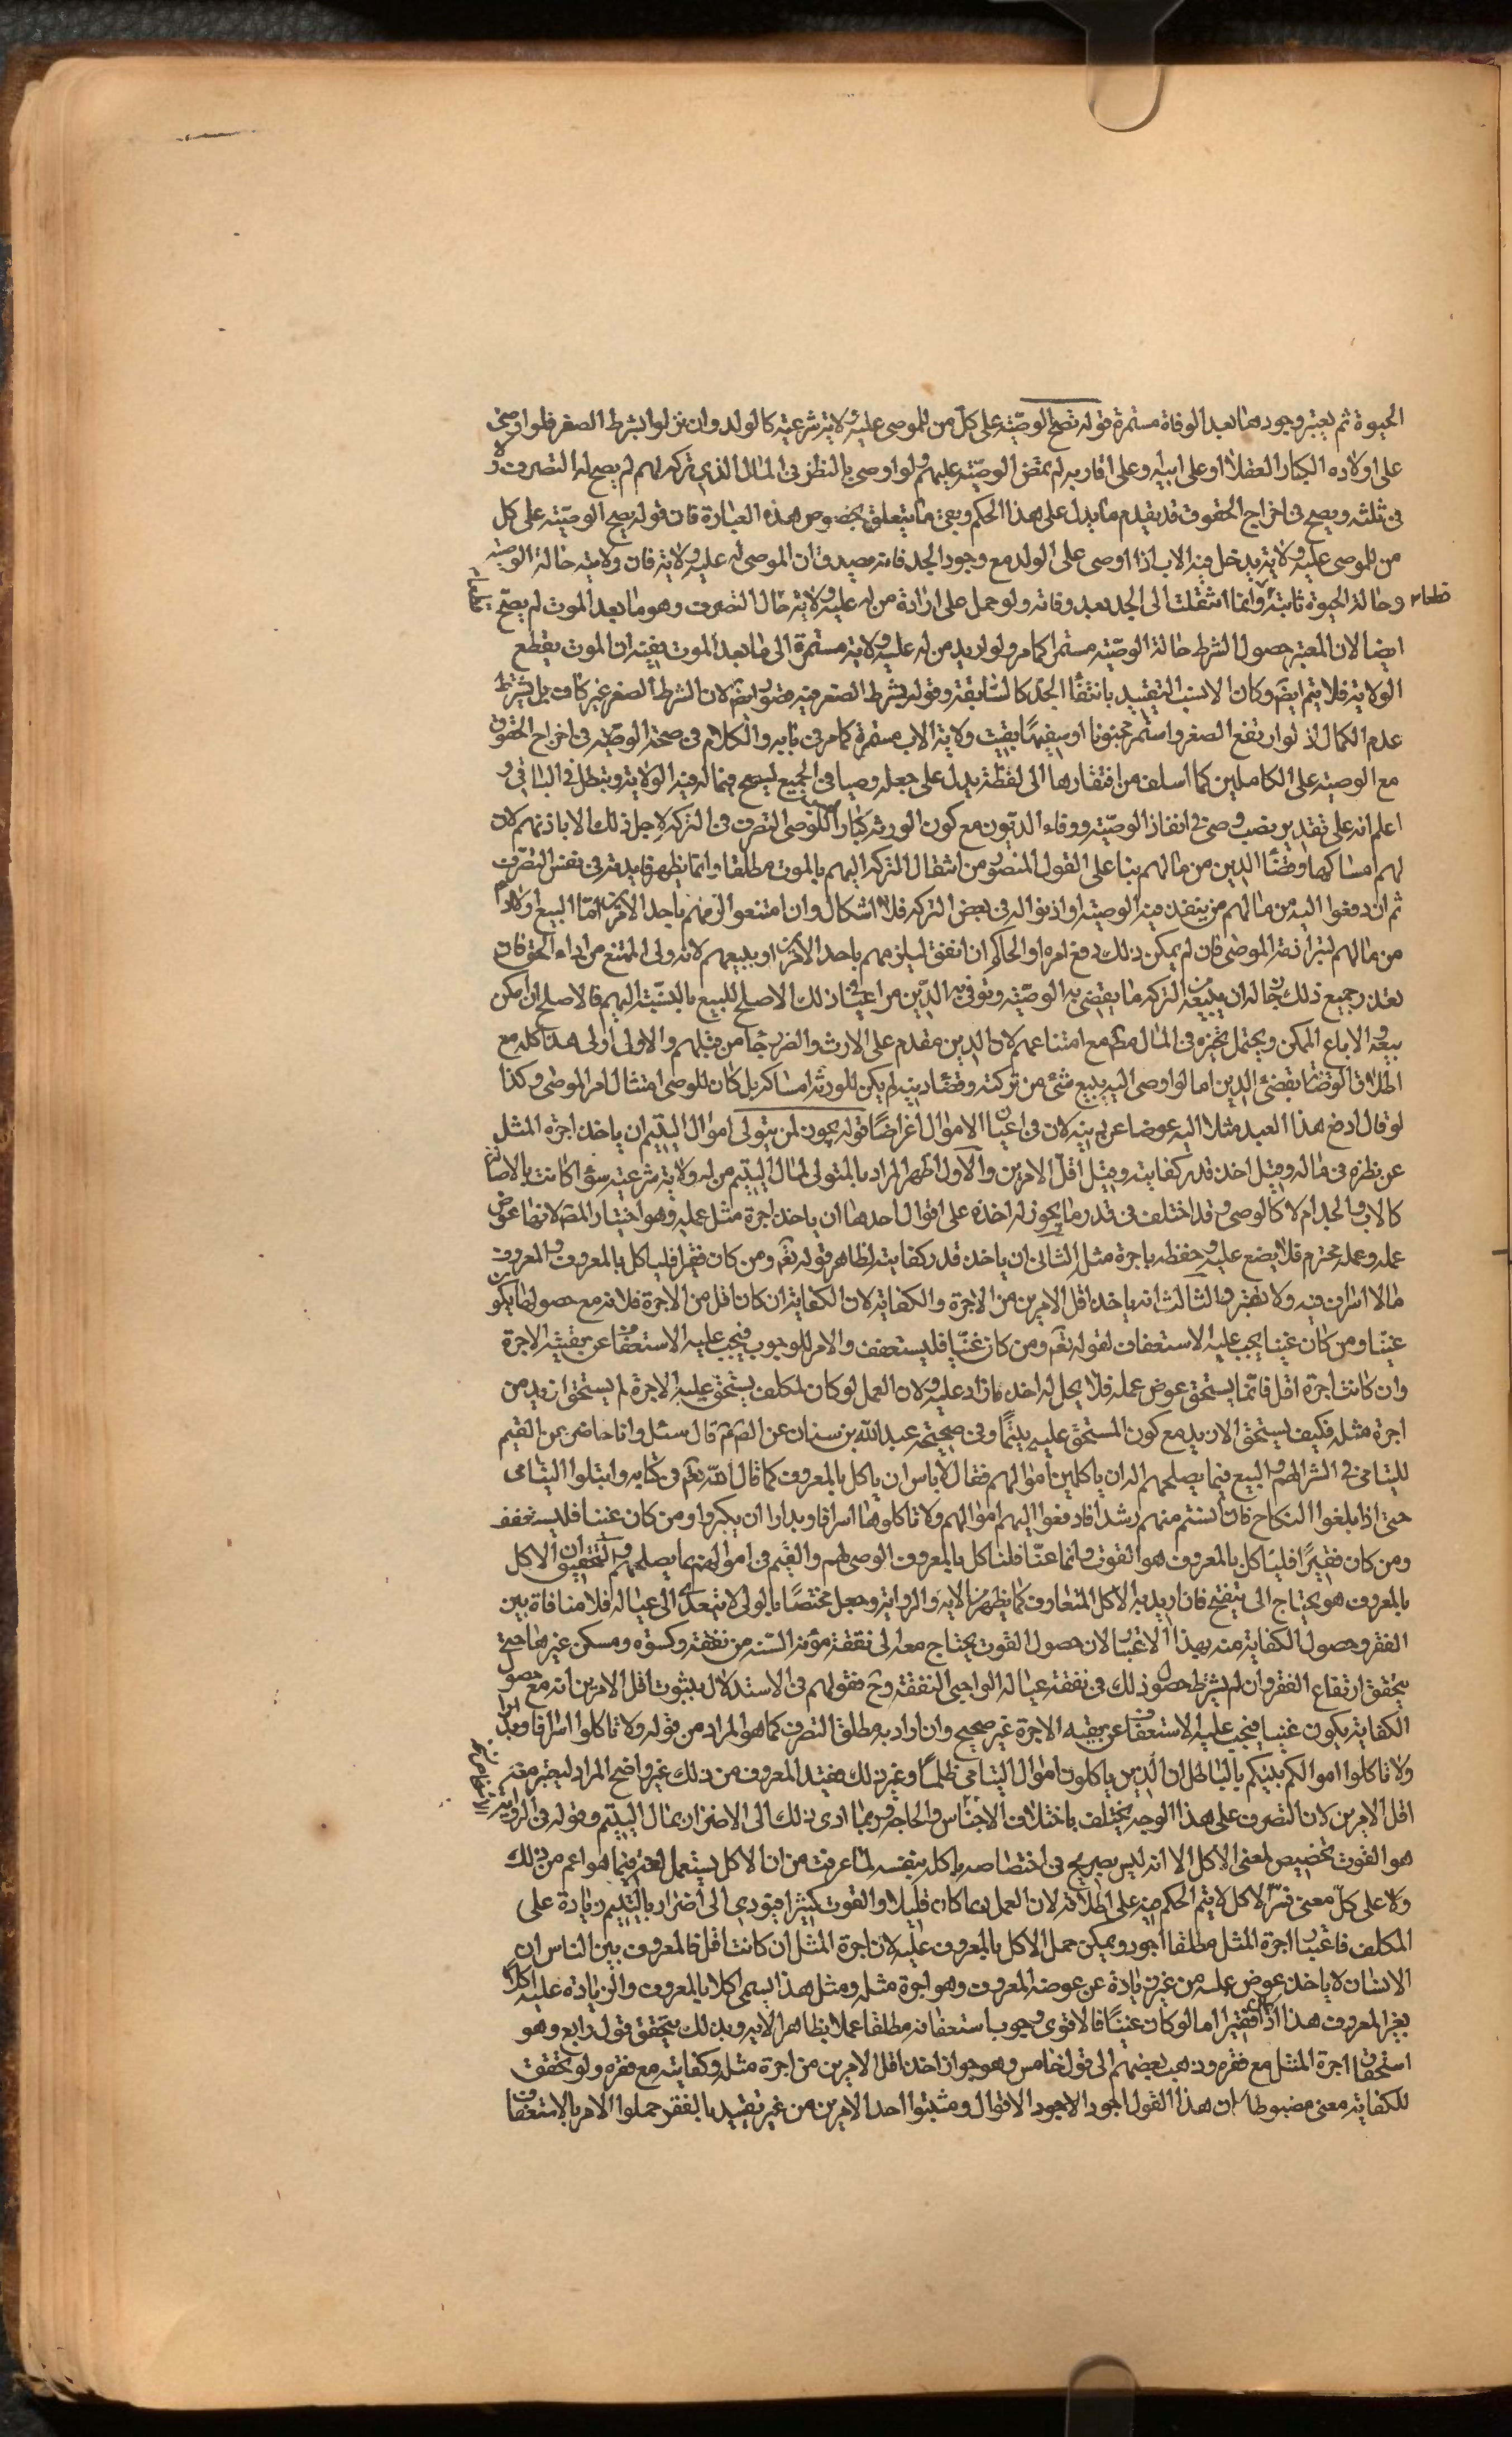 الحيوة ثم يعتبر وجودهما بعد الوفاة مستمرة قوله تصح الوصيّة على كل من للموصى عليه ولاية شرعية كالولد وان نزلوا بشرط الصغر فلو اوصى
على اولاده الكبار العقلا او على ابيه وعلى اقاربه لم تمض الوصيّة عليهم ولو اوصى بالنظر فى المال الذي تركه لهم لم يصح له التصرف ولا
فى ثلثه ويصح فى اخراج الحقوق قد تقدم ما يدل على هذا الحكم وبقى ما يتعلق بخصوص هذه العبارة فان قوله يصح الوصيّة على كل
من للموصى عليه ولاية يدخل فيه الاب اذا اوصى على الولد مع وجود الجد فانه يصدق ان الموصى له عليه ولاية فان ولايته حالة الوصية
وحالة الحيوة ثابتة وانما انتقلت الى الجد بعد وفاته ولو حمل على ارادة من له عليه ولاية حال التصرف وهو ما بعد الموت لم يصح
ايضا لان المعتبر حصول الشرط حالة الوصيّة مستمرا كما مر ولو اريد من له عليه ولاية مستمرة الى ما بعد الموت ففيه ان الموت يقطع
الولاية فلا يتم ايضا وكان الانسب التقييد بانتفاء الجد كالسابقة وقوله بشرط الصغر فيه قصور ايضا لان الشرط الصغر غير كاف بل يشترط
عدم الكمال اذ لو ارتفع الصغر واستمر مجنونا او سفيها بقيت ولاية الاب مستمرة كما مر فى بابه والكلام فى صحة الوصيّة فى اخراج الحقوق
مع الوصية على الكاملين كما اسلف من افتقارها الى لفظة يدل على جعله وصيا فى الجميع ليصح فيما له فيه الولاية ويبطل فى الباقى و
اعلم انه على تقدير نصب وصى فى انفاذ الوصيّة ووفاء الديون مع كون الورثة كبارا ليس للوصى التصرف فى التركة لاجل ذلك الا باذنهم لان
لهم امساكها وقضاء الدين من مالهم بنا على القول المنصور من انتقال التركة اليهم بالموت مطلقا وانما يظهر فايدته فى نفس التصرف
ثم ان دفعوا اليه من مالهم من ينفذ فيه الوصية او اذنوا له فى بعض التركة فلا اشكال وان امتنعوا الزمهم باحد الامرين اما البيع او الاداء
من مالهم لتبرا ذمة الموصى فان لم يمكن ذلك دفع امره الى الحاكم ان اتفق ليلزمهم باحد الامرين او يبيعهم لانه ولى الممتنع من اداء الحق فان
تعذر جميع ذلك جاز له ان يبيع من التركة ما يقضى به الوصيّة وتوفى به الدين مراعيا فى ذلك الاصلح للبيع بالنسبة اليهم فالاصلح ان امكن
بيعه والا باع الممكن ويحتمل تخيره فى المال مطلقا مع امتناعهم لان الدين مقدم على الارث والضرر جاء من قبلهم والاولى اولى هذا كله مع
اطلاق الوصاية بقضاء الدين اما لو اوصى اليه ببيع شىء من تركته وقضاء دينه لم يكن للورثة امساكه بل كان للوصى امتثال امر الموصى وكذا
لو قال ادفع هذا العبد مثلا اليه عوضا عن دينه لان فى اعيان الاموال اغراضا قوله يجوز لمن يتولى اموال اليتيم ان ياخذ اجرة المثل
عن نظره فى ماله وقيل اخذ قدر كفايته وقيل اقل الامرين والاول اظهر المراد بالمتولى لمال اليتيم من له ولاية شرعية سواء كانت بالاصالة
كالاب والجد ام لا كالوصى وقد اختلف فى قدر ما يجوز له اخذه على اقوال احدها ان ياخذ اجرة مثل عمله وهو اختيار المصنف لانها عوض
عمله وعمله محترم فلا يضيع عليه وحفظه باجرة مثله الثانى ان ياخذ قدر كفايته لظاهر قوله تعالى ومن كان فقيرا فلياكل بالمعروف والمعروف
مالا اسراف فيه ولا تقتير والثالث انه ياخذ اقل الامرين من الاجرة والكفاية لان الكفاية ان كان اقل من الاجرة فلانه مع حصولها يكون
غنيا ومن كان غنيا يجب عليه الاستعفاف لقوله تعالى ومن كان غنيّا فليستعفف والامر للوجوب فيجب عليه الاستعفاف عن بقية الاجرة
وان كانت اجرة اقل فانما يستحق عوض عمله فلا يحل له اخذ ما زاد عليه ولان العمل لو كان لمكلف يستحق عليه الاجرة لم يستحق ازيد من
اجرة مثله فكيف يستحق الازيد مع كون المستحق عليه يتيما وفى صحيحة عبد الله بن سنان عن الصادق قال سئل وانا حاضر عن القيم
لليتامى فى الشراء لهم والبيع فيما يصلحهم اله ان ياكل من اموالهم فقال لا باس ان ياكل بالمعروف كما قال الله تعالى فى كتابه وابتلوا اليتامى
حتى اذا بلغوا النكاح فان آنستم منهم رشدا فادفعوا اليهم اموالهم ولا تاكلوها اسرافا وبدارا ان يكبروا ومن كان غنيا فليستعفف
ومن كان فقيرًا فلياكل بالمعروف هو القوت وانما عنى فلياكل بالمعروف الوصى لهم والقيم فى اموالهم بما يصلحهم والتحقيق ان الاكل
بالمعروف هو يحتاج الى تنقيح فان اريد به الاكل المتعارف كما يظهر من الاية والرواية وجعل مختصا بالولى لا يتعدى الى عياله فلا منافاة بين
الفقر وحصول الكفاية منه بهذا الاعتبار لان حصول القوت يحتاج معه الى نفقة مؤنة السنة من نفقة وكسوة ومسكن غيرها حتى
يتحقق ارتفاع الفقر وان لم يشترط حصول ذلك فى نفقة عياله الواجبى النفقة وح فقولهم فى الاستدلال بثبوت اقل الامرين انه مع حصول
الكفاية يكون غنيا فيجب عليه الاستعفاف عن بقيه الاجرة غير صحيح وان اراد به مطلق التصرف كما هو المراد من قوله ولا تاكلوا اسرافا وبدارا
ولا تاكلوا اموالكم بينكم بالباطل ان الذين ياكلون اموال اليتامى ظلمًا وغير ذلك فقيد المعروف من ذلك غير واضح المراد ليعتبر معه
اقل الامرين لان التصرف على هذا الوجه يختلف باختلاف الاجناس والحاجة وربما ادى ذلك الى الاضرار بمال اليتيم وقوله فى الرواية
هو القوت تخصيص لمعنى الاكل الا انه ليس بصريح فى اختصاصه باكله بنفسه لما عرفت من ان الاكل يستعمل لغة فيما هو اعم من ذلك
ولا على كلّ معنى فسّر الاكل لا يتم الحكم فيه على اطلاقه لان العمل ربما كان قليلا والقوت كثيرا فيؤدى الى اضرار باليتيم زيادة على
المكلف فاعتبار اجرة المثل مطلقا اجود ويمكن حمل الاكل بالمعروف عليه لان اجرة المثل ان كانت اقل فالمعروف بين الناس ان
الانسان لا ياخذ عوض عمله من غير زيادة عن عوضه المعروف وهو اجرة مثله ومثل هذا يسمى اكلا بالمعروف والزيادة عليه اكلا
بغير المعروف هذا اذا كان فقيرا اما لو كان غنيًا فالاقوى وجوب استعفافه مطلقا عملا بظاهر الاية وبذلك يتحقق قول رابع وهو
استحقاق اجرة المثل مع فقره وذهب بعضهم الى قول خامس وهو جواز اخذ اقل الامرين من اجرة مثله وكفايته مع فقره ولو تحققت
للكفاية معنى مضبوطا كان هذا القول اجود الاجود الاقوال ومثبتوا احد الامرين من غير تقييد بالفقر حملوا الامر بالاستعفاف